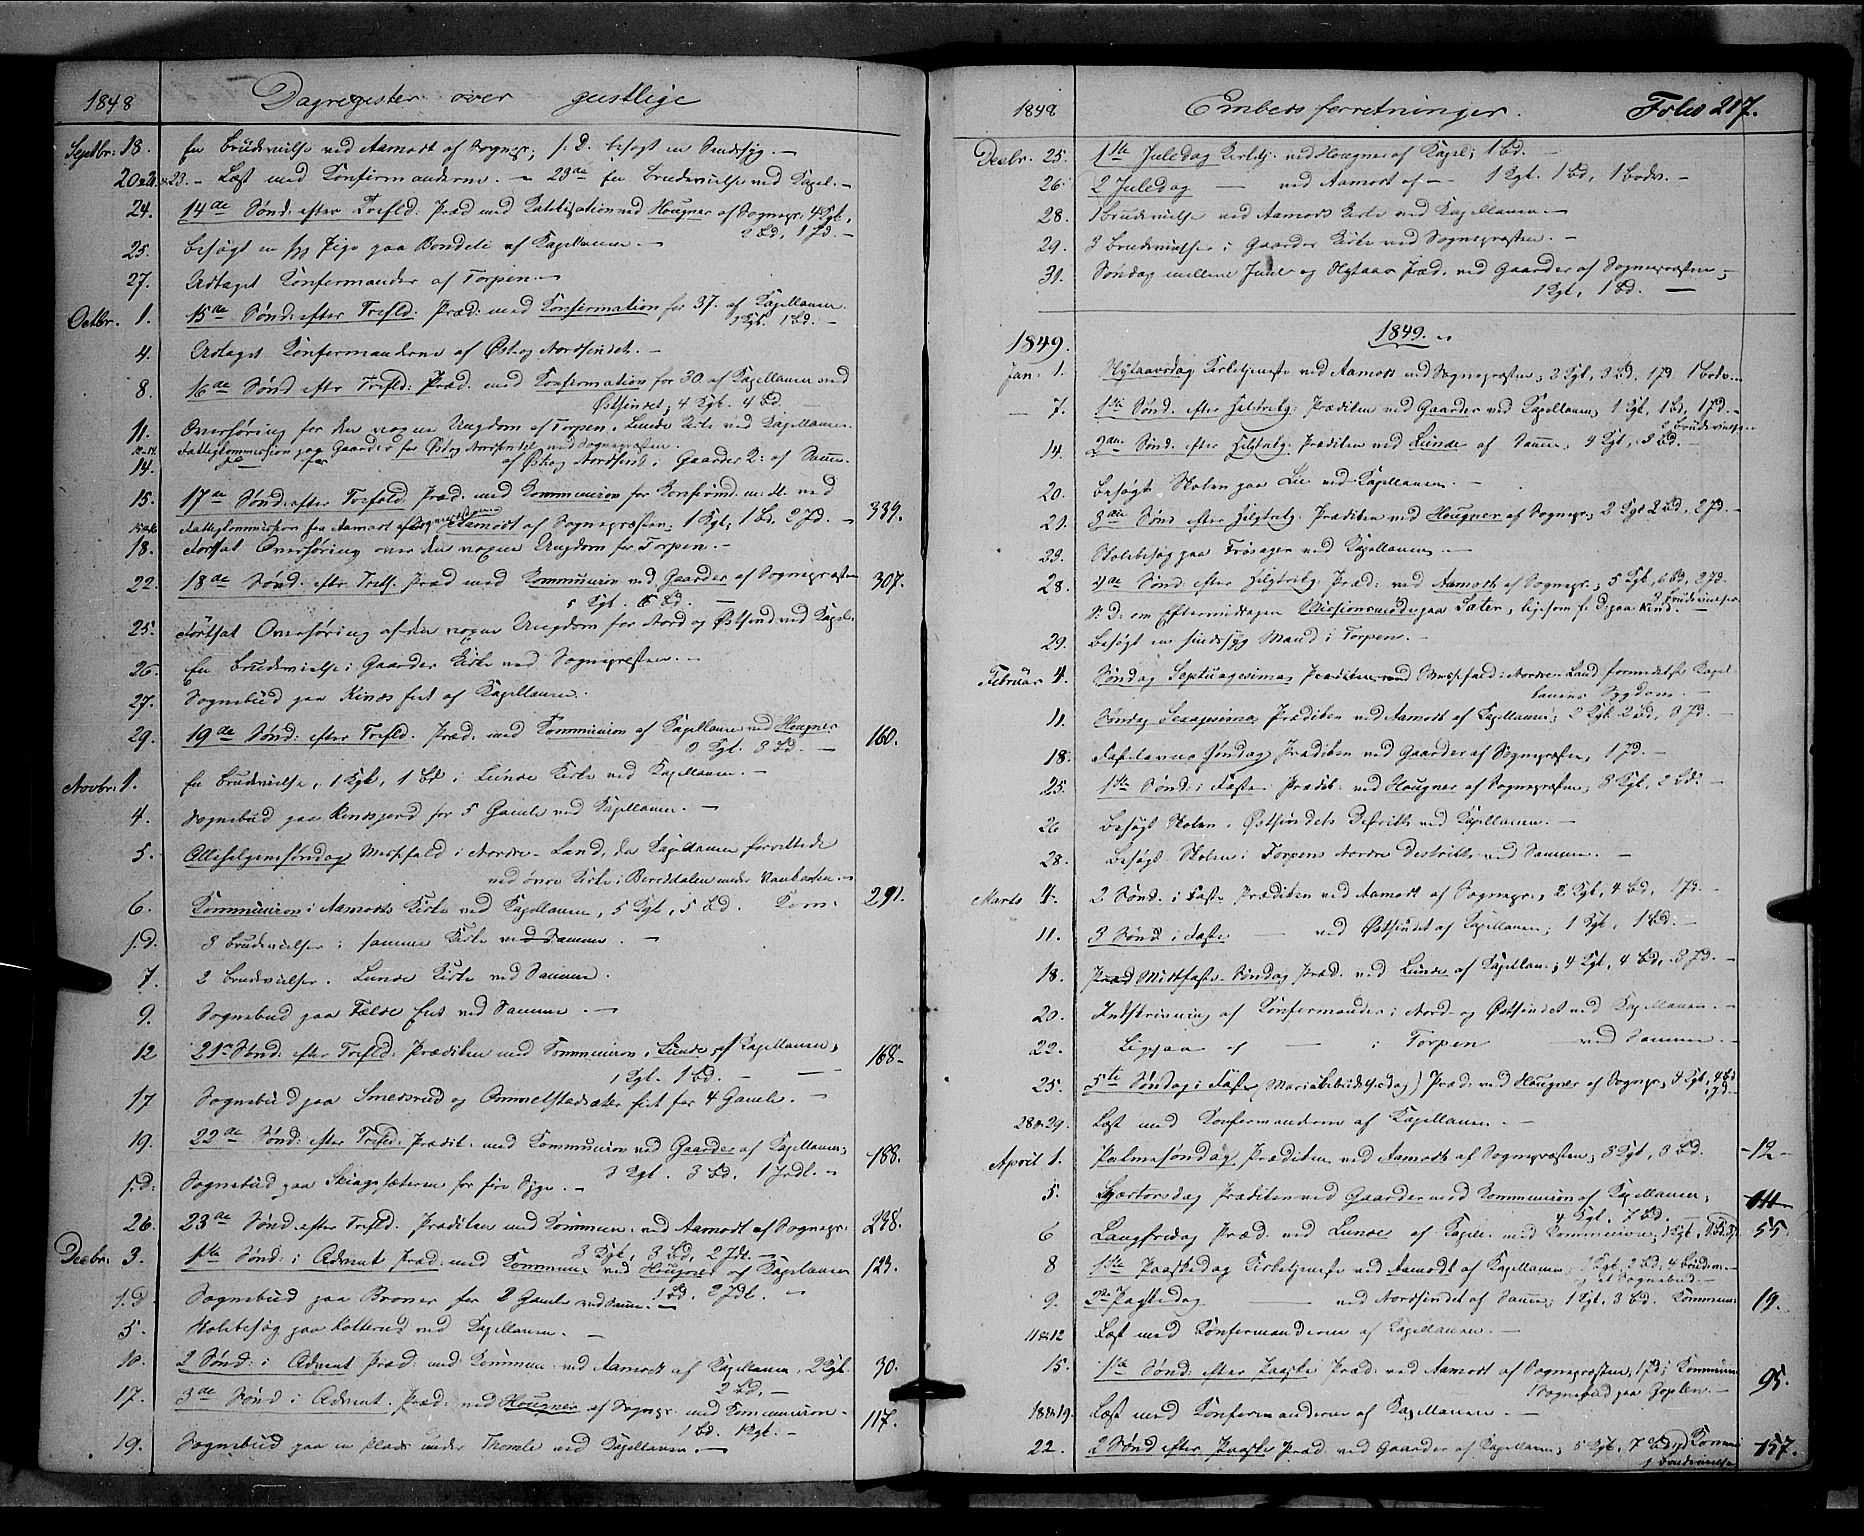 1848 Dagregister over geistlige
Septbr: 18. En Brudevielse ved Aamodt af Sognepr; s. D. besøgt en Sindssyg. –
20 & 21 & 23. – Læst med Konfirmanderne. – 23de en Brudevielse ved Kapel. –
24. 14de Sønd: efter Trefld. Præd med Katekisation ved Hougner af Sognepr. 4 Kgk,
2 Bd, 1 Jd. –
25. besøgt en syg Pige paa Bondeli af Kapellanen. –
27. Udtaget Konfermander af Torpen. –
Octbr. 1. 15de Sønd: efter Trefld. Præd: med Konfirmation for 37. af Kapellanen.
Kgk. 1 Bd. –
4. Udtaget Konfermanderne af Øst og Nordsindet. –
8. 16de Sønd efter Trefld: Præd. med Konfirmation for 30. af Kapellanen ved
Østsindet; 4 Kgk. 4 Bd.
11. Overhøring for den voxne Ungdom af Torpen, i Lunde Kirke ved Kapellanen.
Fattigkommission paa Gaarder for Øst og Nordsindet, ved Sognepræsten.
14. af Øst og Nordsind i Gaarder af Samme.
15. 17de Sønd: efter Trefold. Præd. med Kommunion for Konfirmd. m: fl. ved
Aamodt af Sognepræsten; 1 Kgk, 1 Bd. 2 Jd. – 339.
Fattigkommission for Aamodt
18. Fortsat Overhøring over den voxne Ungdom for Torpen. –
22. 18de Sønd. efter Tref. Præd med Kommunion ved Gaarder af Sognepræsten 307.
5 Kgk. 6 Bd. –
25. Fortsat Overhøring af den voxne Ungdom for Nord og Østsind ved Kapel.
26. En Brudevielse i Gaarder Kirke ved Sognepræsten. –
27. Sognebud paa Kinds Eiet af Kapellanen.
29. 19de Sønd: efter Trefld. Præd. med Kommunion af Kapellanen ved Hougner 160.
2 Kgk. 3 Bd. –
Novbr: 1. En Brudevielse, 1 Kgk, 1 Bd i Lunde Kirke ved Kapellanen. –
4. Sognebud paa Kindsjord for 5 Gamle ved Kapellanen. –
5. Allehelgenssøndag Messefald i Nordre-Land, da Kapellanen forrettede
6. Kommunion i Aamodts Kirke ved Kapellanen, 5 Kgk, 5 Bd. Kom: 291.
s. d. 3 Brudevielser i samme Kirke ved Samme. –
7. 2 Brudevielser. Lunde Kirke ved Samme.
9. Sognebud paa Følde Eiet ved Samme. –
12 21de Sønd: efter Trefld. Prædiken med Kommunion i Lunde, af Kapellanen, 168 –
1 Kgk. 1 Bd. –
17 Sognebud paa Smedsrud og Ommelstadsæter Eiet for 4 Gamle. –
19. 22de Sønd: efter Trefld. Prædik. med Kommunion ved Gaarder af Kapellanen; 188.
3 Kgk. 3 Bd. 1 Jrdl. –
s. d: Sognebud paa Skiagesæteren for fire Syge. –
26. 23de Sønd: efter Trefld. Prædiken med Kommun. ved Aamodt af Sognepr: 238.
3 Kgk, 3 Bd, 2 Jdl. –
Decbr: 3. 1ste Sønd: i Advent Præd. med Kommun. ved Hougner af Kapellanen 123.
1 Bd. 2 Jdl. –
s. d Sognebud paa Broner for 2 Gamle ved Samme. –
5. Skolebesøg paa Kolterud ved Kapellanen. –
10. 2 Sønd: i Advent Præd. med Kommun. ved Aamodt af Kapellanen. 2 Kgk. 30.
2 Bd. –
17. 3de Sønd i Advent. Præd. ved Hougner af Sognepr. med Kommunion. 117.
1 Bd. 1 Kgk. –
19. Sognebud paa en Plads under Thomle ved Kapellanen. –
1848 Embedsforretninger. Folio 217.
Decbr. 25. 1ste Juledag Kirketj. ved Hougner af Kapel; 1 Bd. –
26. 2 Juledag – ved Aamodt af – 1 Kgk. 1 Bd, 1 Bodv. –
28. 1 Brudevielse ved Aamodts Kirke ved Kapellanen –
29. 3 Brudevielser i Gaarder Kirke ved Sognepræsten. –
31. Søndag mellem Juul og Nytaar Præd. ved Gaarder af Sognepræsten,
1 Kgk, 1 Bd. –
1849. 1849. –
Jan: 1. Nytaarsdag Kirketjeneste ved Aamodt ved Sognepræsten, 3 Kgk, 3 Bd, 1 Jd. 1 Bodv. –
– 7. 1ste Sønd. efter Heltrek: Prædiken ved Gaarder ved Kapellanen, 1 Kgk, 1 Bd, 1 Jd. –
2 Brudevielser
14. 2den Sønd. efter Heltrek: Prædiken ved Lunde af Samme. 4 Kgk, 3 Bd.
20. Besøgt Skolen paa Lie ved Kapellanen. –
21. 3die Sønd efter Heltrek. Prædiken ved Hougner af Sognepr; 2 Kgk 2 Bd, 2 Jd. –
23. Skolebesøg paa Frøsager ved Kapellanen. –
28. 4de Sønd. efter Heltrek. Præd: ved Aamodt af Sognepr.; 5 Kgk, 6 Bd, 2 Jd.
S. D. om Eftermiddagen Missionsmøde paa Sater, ligesom s. D. paa Kind. 2 Brudevielser
29. Besøgt en sindssyg Mand i Torpen. –
Februar 4. Søndag Septuagesima Messefald i Nordre-Land formedelst Kapel-
lanens Sygdom. –
11. Søndag Sexagesima Prædiken ved Aamodt af Kapellanen; 2 Kgk 2 Bd, 3 Jd. –
18. Fastelavns Søndag Prædiken ved Gaarder af Sognepræsten, 1 Jd. –
25. 1ste Sønd: i Faste Prædik. ved Hougner af Sognepræsten, 3 Kgk, 2 Bd. –
26 Besøgt Skolen i Østsindets Distrikt ved Kapellanen. –
28. Besøgt Skolen i Torpens Nordre Distrikt ved Samme. –
Marts 4. 2 Sønd. i Faste Prædiken ved Aamodt af Sognepr., 2 Kgk, 4 Bd, 1 Jd. –
11. 3 Sønd i Faste – ved Østsindet af Kapellanen; 1 Kgk, 1 Bd. –
18. Præd Midtfaste-Søndag Præd. ved Lunde af Kapellan.; 4 Kgk, 4 Bd, 3 Jd. –
20. Indskrivning af Konfermander i Nord- og Østsindet ved Kapellanen. –
22. Ligesaa af – i Torpen – ved Samme. –
25. 5te Søndag i Faste (Mariæbebudelsesdag) Præd. ved Hougner af Sognepr, 4 Kgk, 4 Bd
1 Jd. –
28 & 29. Læst med Konfermanderne af Kapellanen. –
April 1. Palmesøndag Prædiken ved Aamodt af Sognepræsten, 3 Kgk, 3 Bd. – 12 –
5. Skjærtorsdag Prædiken ved Gaarder med Kommunion af Kapellanen,
4 Kgk, 7 Bd. –
6 Langfredag Præd. ved Lunde af Kapell. med Kommunion, 1 Kgk, 55.
8 1ste Paaskedag Kirketjeneste ved Aamodt af Kapellanen 1 Kgk, 2 Bd, 4 Brudev. –
og et Sognebud. –
9. 2den Paaskedag – ved Nordsindet af Samme, 1 Kgk, 3 Bd. Kommun: 19.
11 & 12 Læst med Konfermanderne af Kapellanen. –
15. 1ste Sønd. efter Paaske Præd. ved Aamodt af Sognepræsten, 1 Jd; Kommunion 95.
1 Sognebud paa Goplen. –
18 & 19. Læst med Konfermanderne af Kapellanen –
22. 2 Sønd efter Paaske Præd. ved Gaarder af Kapellanen, 5 Kgk, 7 Bd, Kommun 157.
1 Brudevielse